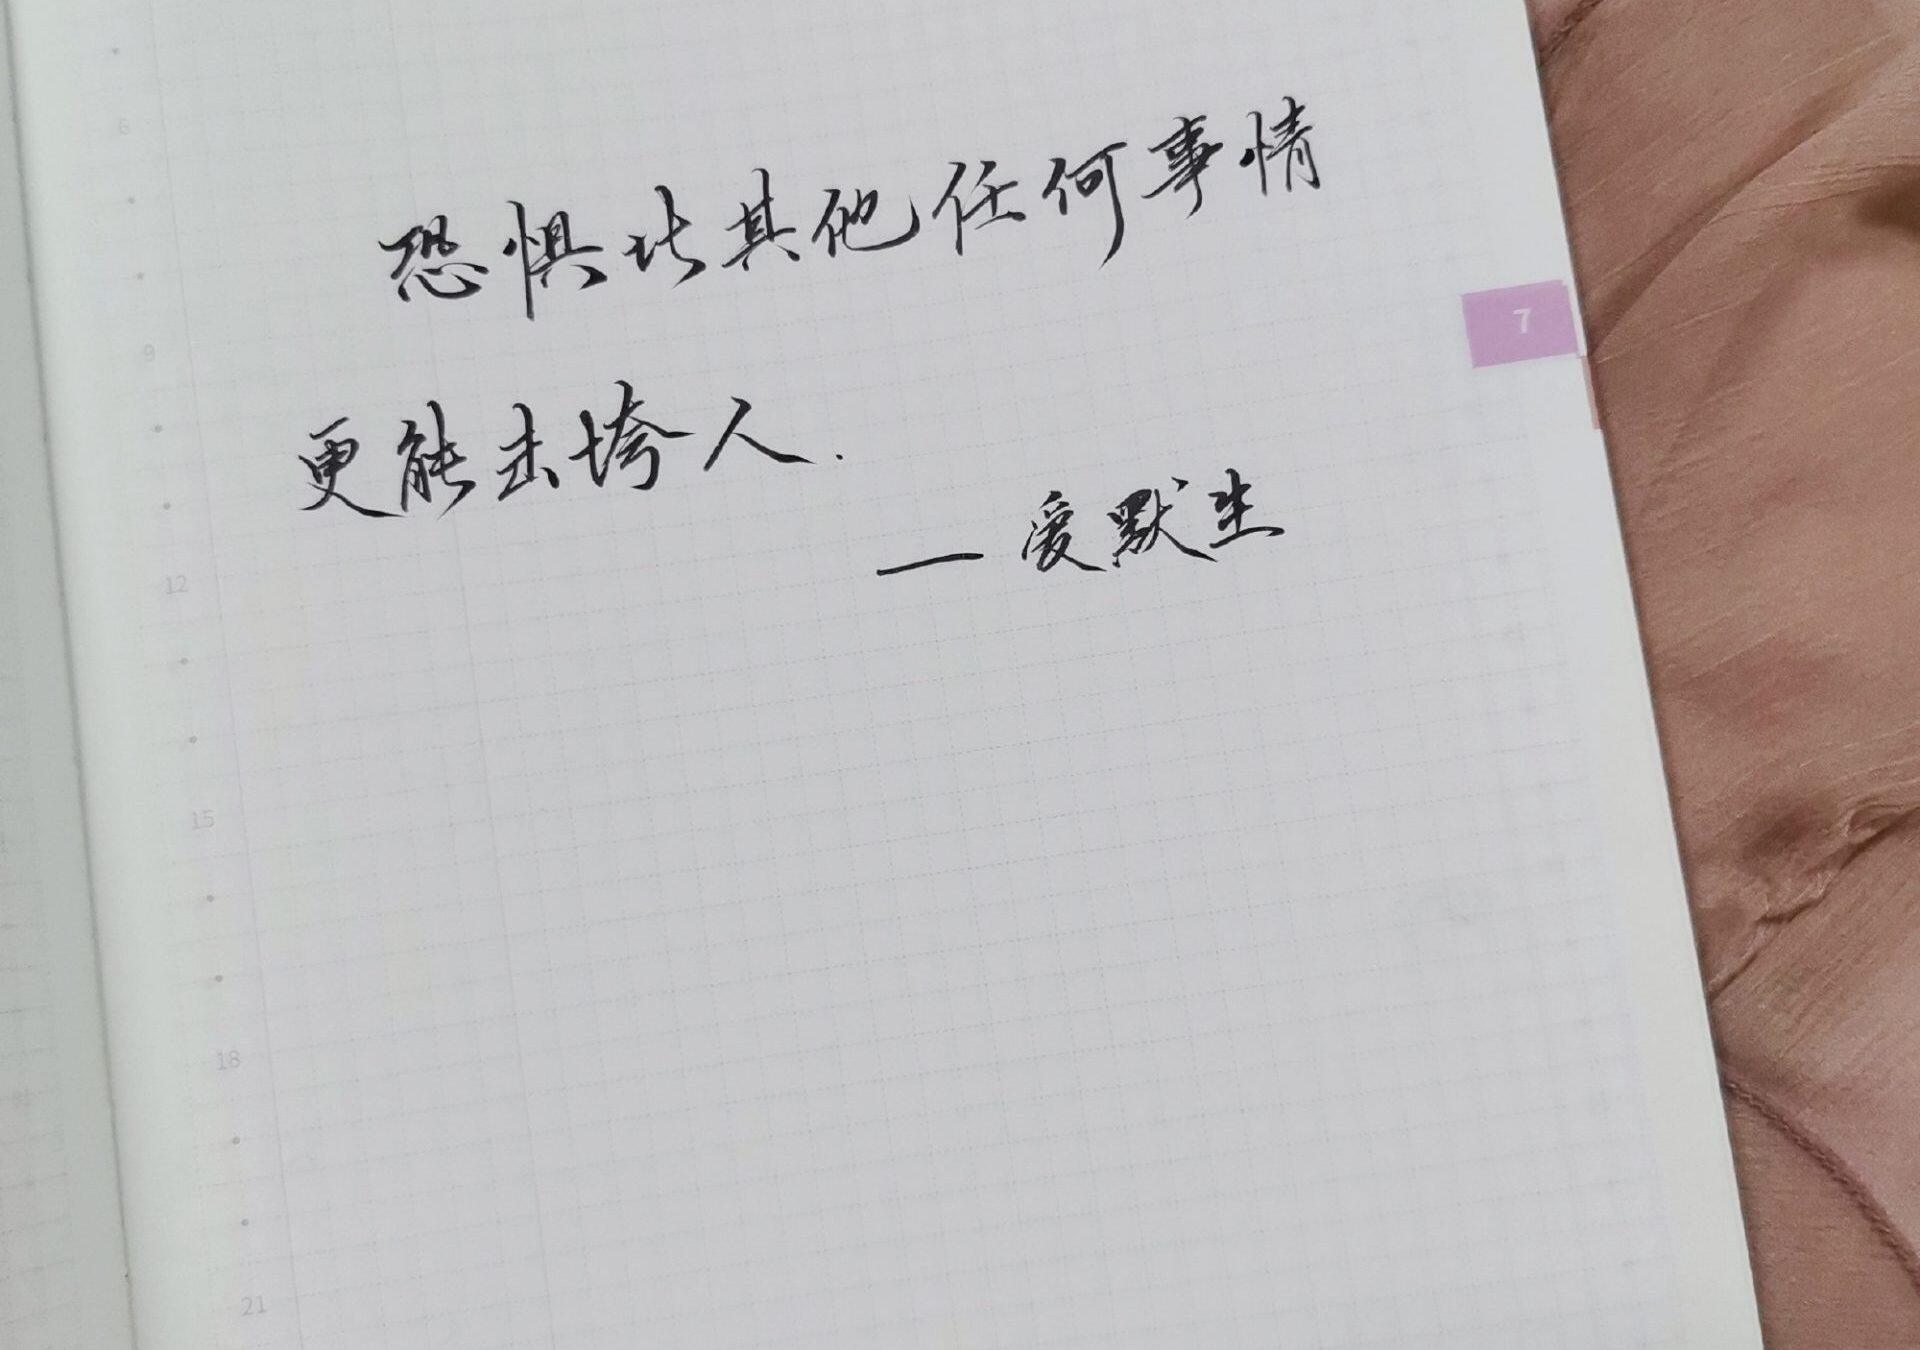 6
恐惧比其他任何事情
7
9
更能击垮人.
—爱默生
12
15
18
21